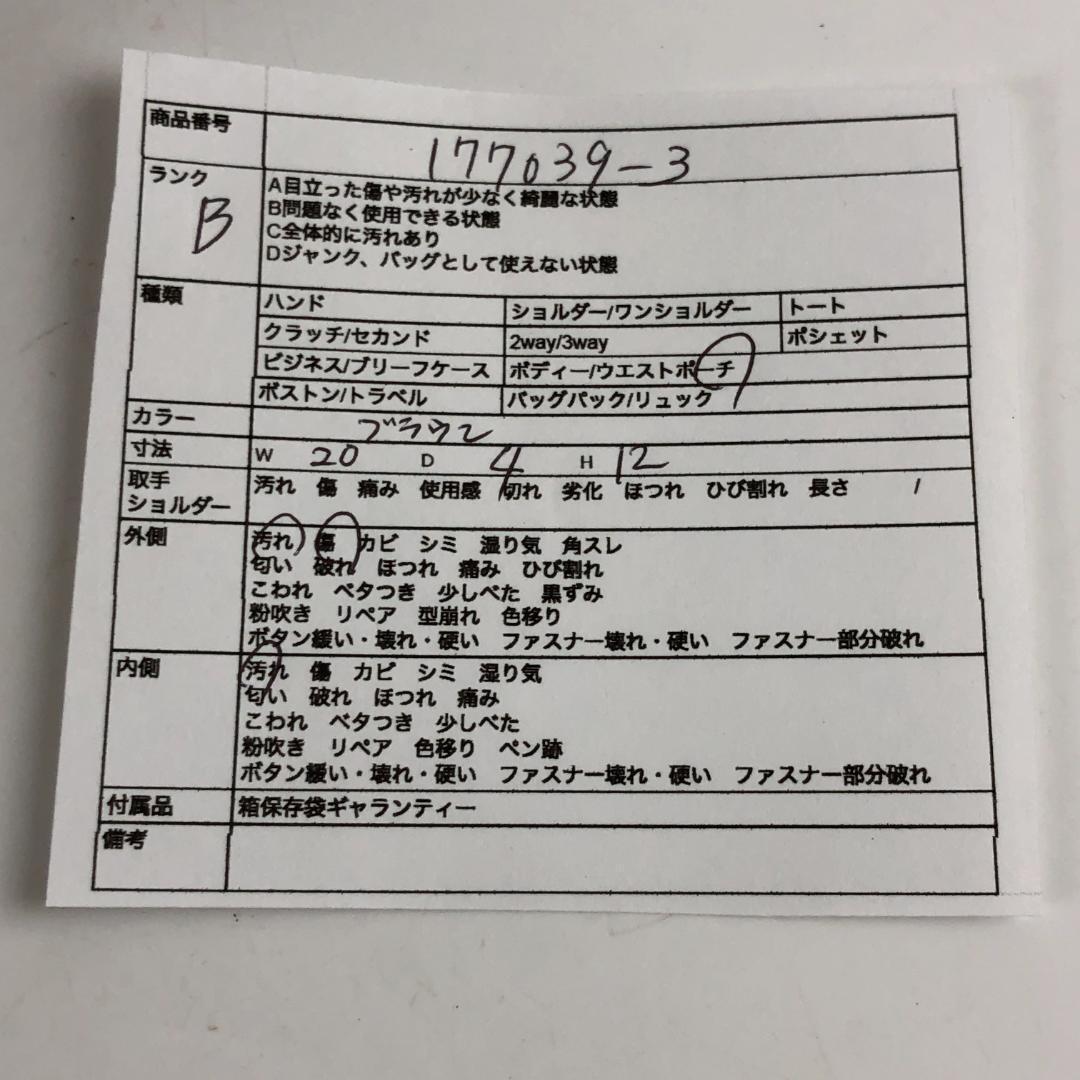 商品番号 177039-3
ランク B
A目立った傷や汚れが少なく綺麗な状態
B問題なく使用できる状態
C全体的に汚れあり
Dジャンク、バッグとして使えない状態
種類 ハンド ショルダー/ワンショルダー トート
クラッチ/セカンド 2way/3way ポシェット
ビジネス/ブリーフケース ボディー/ウエストポーチ
ボストン/トラベル バッグパック/リュック
カラー ブラウン
寸法 W 20 D 4 H 12
取手 汚れ 傷 痛み 使用感 切れ 劣化 ほつれ ひび割れ 長さ /
ショルダー
外側 汚れ 傷 カビ シミ 湿り気 角スレ
匂い 破れ ほつれ 痛み ひび割れ
こわれ ベタつき 少しべた 黒ずみ
粉吹き リペア 型崩れ 色移り
ボタン緩い・壊れ・硬い ファスナー壊れ・硬い ファスナー部分破れ
内側 汚れ 傷 カビ シミ 湿り気
匂い 破れ ほつれ 痛み
こわれ ベタつき 少しべた
粉吹き リペア 色移り ペン跡
ボタン緩い・壊れ・硬い ファスナー壊れ・硬い ファスナー部分破れ
付属品 箱保存袋ギャランティー
備考